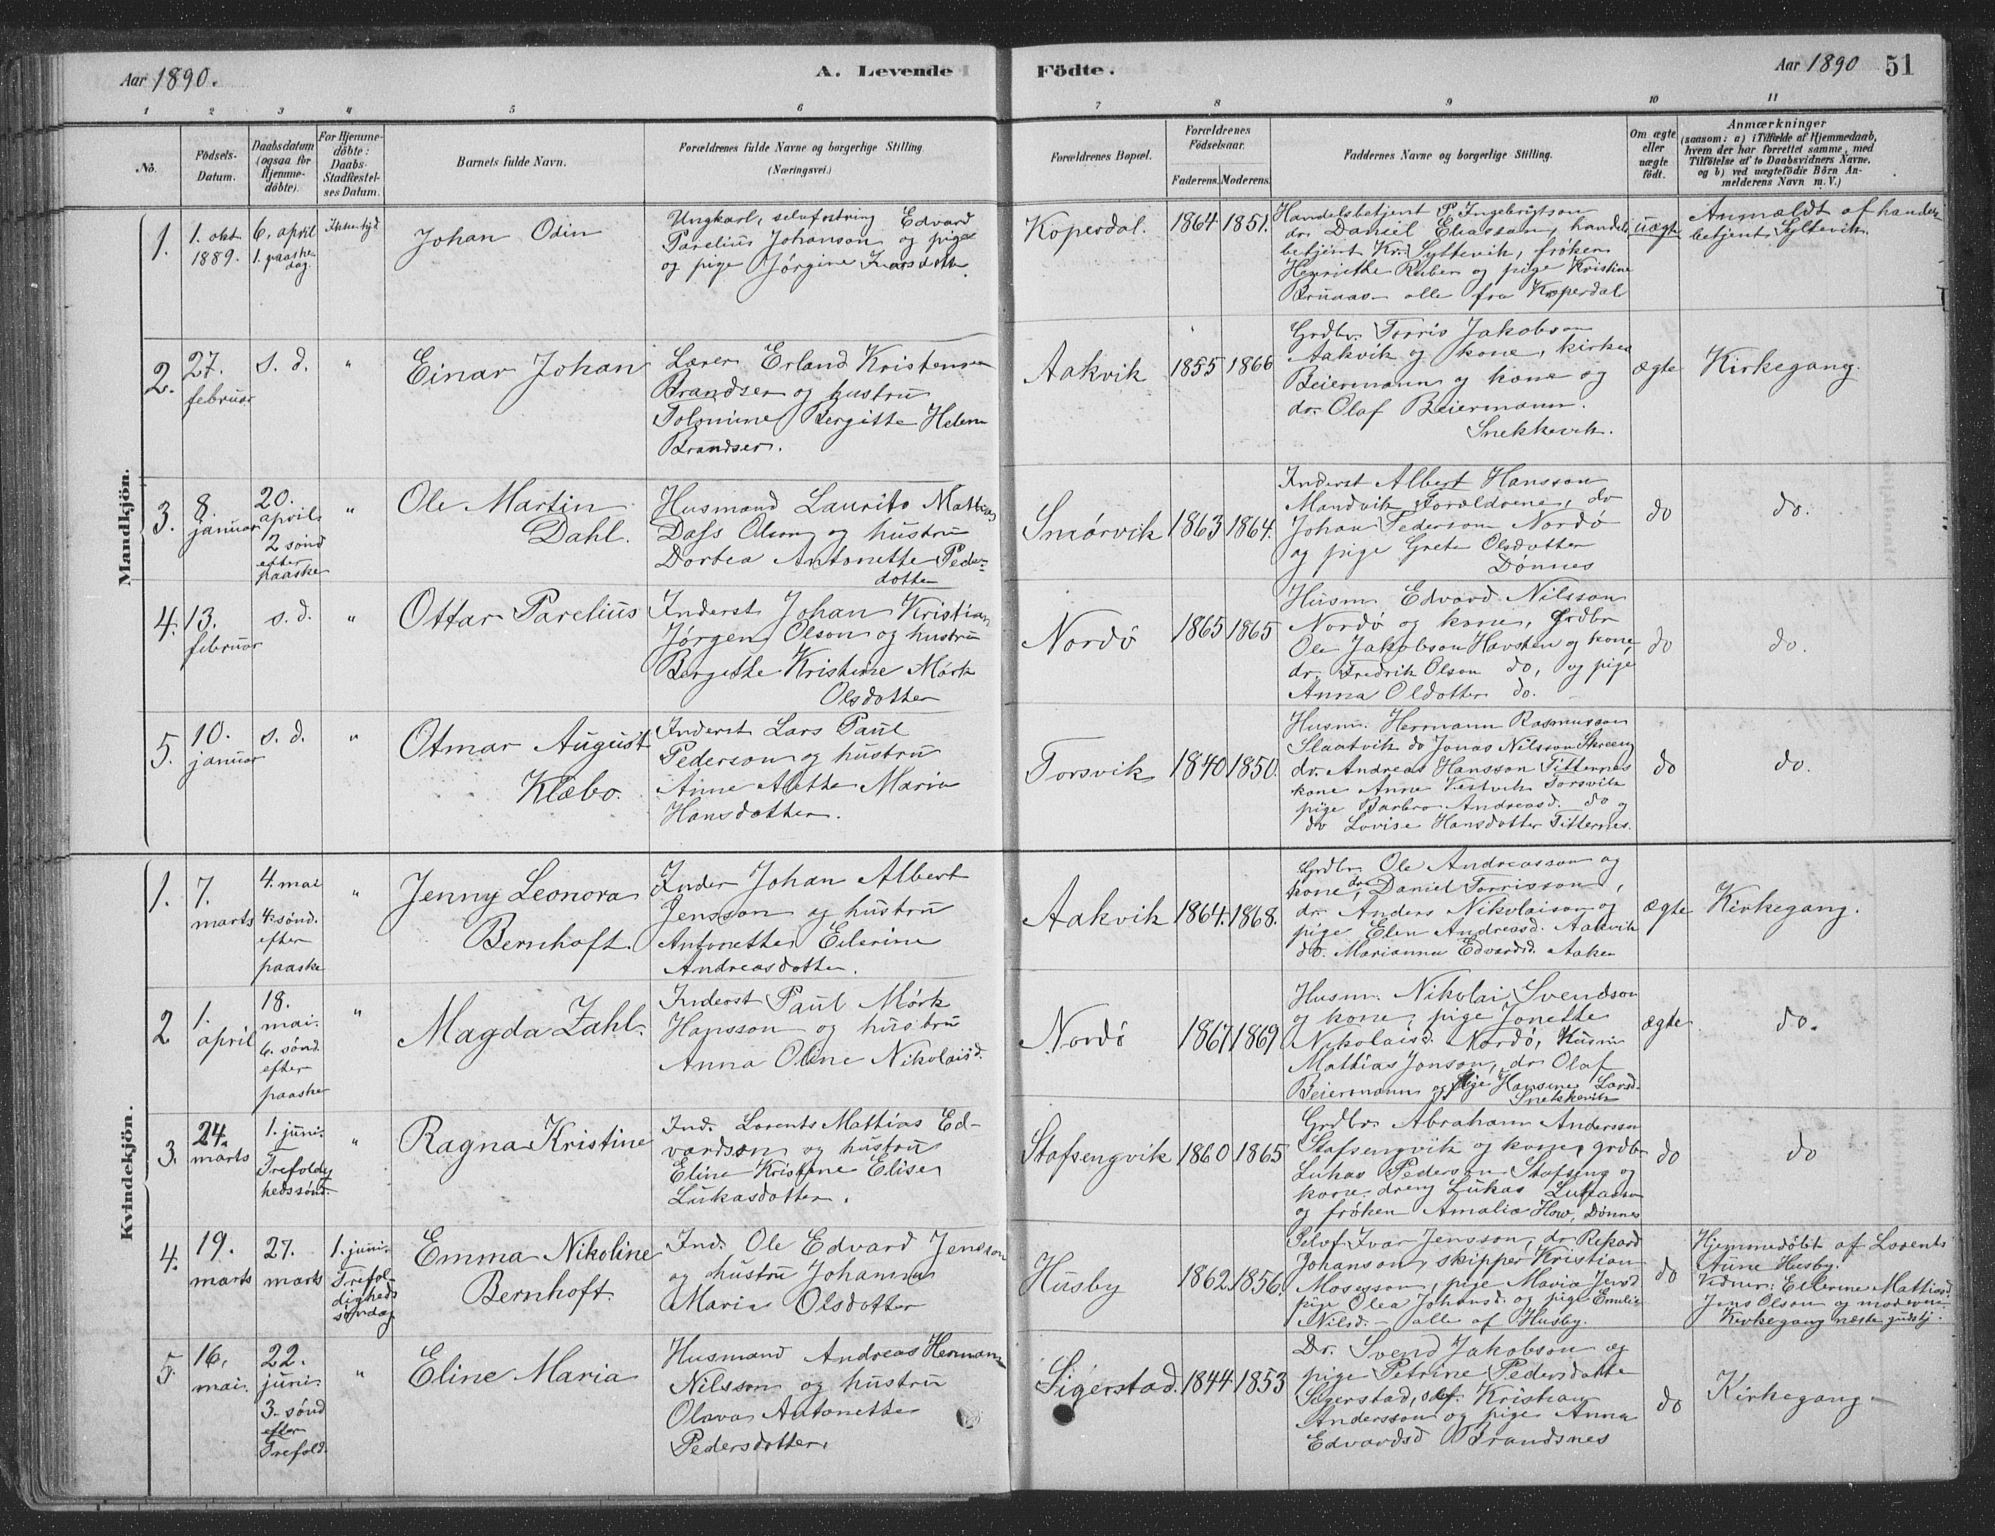 Aar 1890.
A. Levende
Födte.
Aar 1890
51
1 2 3 4 5 6 7 8 9 10 11
No.
Födsels-
Datum.
Daabsdatum
(ogsaa for
Hjemme-
döbte).
For Hjemme-
döbte:
Daabs-
Stadfæstel-
ses Datum.
Barnets fulde Navn.
Forældrenes fulde Navne og borgerlige Stilling
(Næringsvei.)
Forældrenes Bopæl.
Forældrenes
Födselsaar.
Faderens.
Moderens.
Faddernes Navne og borgerlige Stilling.
Om ægte
eller
uægte
födt.
Anmærkninger
(saasom: a) i Tilfælde af Hjemmedaab,
hvem der har forrettet samme, med
Tilföielse af to Daabsvidners Navne.
og b) ved uægtefödte Börn An-
melderens Navn m. V.)
Mandkjön.
1.
1. okt
1889.
6. april
1. paaske
dag.
Johan Odin
Ungkarl, Edvard
Parelius Johanson og pige
og pige Jørgine Larsdotter
Koperdal.
1864
1851.
Handelsbetjent P. Ingebrigtson
dr. Daniel Eliasson, handels
betjent Kr. Syltevik, frøken
Henriette og pige Kristine
Bruaas alle fra Koperdal
uægte
Anmældt af handels
betjent Syltevik.
2.
27.
februar
s. d.
"
Einar Johan
Lærer Erland Kristensen
Brandser og hustru
Bergitte Helena
Brandser.
Aakvik
1855
1866
Grdbr. Torris Jakobson
Aakvik og kone, kirkes
Beiermann og kone og
dr. Olaf Beiermann.
Snekkevik.
ægte
Kirkegang.
3.
8.
januar
20.
april.
2 sønd
efter
paaske
"
Ole Martin
Dahl.
Husmand Laurits Mattias
Dass Olson og hustru
Dortea Antonette Peder=
dotter
Smørvik
1863
1864.
Inderst Albert Hansson
Mandvik, Forældrene, dr
Johan Pederson Nordø
og pige Grete Olsdotter
Dønnes
do
do.
4.
13.
februar
s. d.
"
Ottar Parelius
Inderst Johan Kristian
Jørgen Olson og hustru
Bergitte Kristine Mørk
Olsdotter
Nordø
1865
1865
Husm. Edvard Nilsson
Nordø og kone, Grdbr
Ole Jakobson Havsten og kone,
dr. Fredrik Olson do, og pige
Anna Oldotter do.
do
do.
5.
10.
januar
s. d.
"
Otmar August
Klæbo.
Inderst Lars Paul
Pederson og hustru
Anne Alette Maria
Hansdotter.
Forsvik
1840
1850.
Husm. Hermann Rasmusson
Slaatvik do Jonas Nilsson
dr. Andreas Hansson Titternes
kone Anne Vestvik Forsvik
pige Barbro Andreasd. do og
do Lovise Hansdotter Titternes.
do
do.
Kvindekjön.
1.
7.
marts
4. mai
4. sønd.
efter
paaske
"
Jenny Leonora
Bernhoft.
Inder Johan Albert
Jensson og hustru
Antonette Eilerine
Andreasdotter.
Aakvik
1864.
1868.
Grdbr. Ole Andreasson og
kone, dr. Daniel Torrisson,
dr. Anders Nikolaison og
pige Elen Andreasd. Aakvik
do. Marianna Edvardsd. Aaker
ægte
Kirkegang.
2
1.
april
18.
mai.
6. sønd.
efter
paaske
"
Magda Zahl.
Inderst Paul Mørk
Hansson og hustru
Anna Oline Nikolaisd.
Nordø
1867
1869
Husm. Nikolai Svendson
og kone, pige Jonette
Nikolaisd. Nordø, Husm
Mattias Jonson, dr. Olaf
Beiermann og pige Hansine Larsd.
Snekkevik
ægte
do.
3.
24.
marts
1. juni.
Trefoldig
hedssønd.
"
Ragna Kristine
Ind. Lorents Mattias Ed-
vardson og hustru
Eline Kristine Elise
Lukasdotter.
Stafsengvik
1860
1865
Grdbr. Abraham Anderson
Stafsengvik og kone, grdbr
Lukas Pederson Stafseng og
kone, dreng Lukas Lukasson
og frøken Amalia How, Dønnes
do
do
4.
19.
marts
27.
marts
1. juni.
Trefol
digheds
søndag
Emma Nikoline
Bernhoft.
Ind. Ole Edvard Jensson
og hustru Johanna
Maria Olsdotter
Husby
1862.
1856.
Selvf. Ivar Jensson, dr. Rikard
Johanson, skipper Kristian
Mosesson, pige Maria Jensd
pige Olea Johansd. og pige Emilie
Nilsd. – alle af Husby.
do
Hjemmedøbt af Lorents
Aune Husby.
Vidner: Ellerine Mattiasd.
Jens Olson og moderen
Kirkegang næste gudstj.
5.
16.
mai.
22.
juni.
3. sønd
efter
Trefold.
"
Eline Maria
Husmand Andreas Herman
Nilsson og hustru
Olava Antonette
Pedersdotter.
Sigerstad.
1844
1853
Dr. Svend Jakobson og
pige Petrine Pedersdotter
Sigerstad, self. Kristian
Andersson og pige Anna
Edvardsd Brandsnes
do
Kirkegang